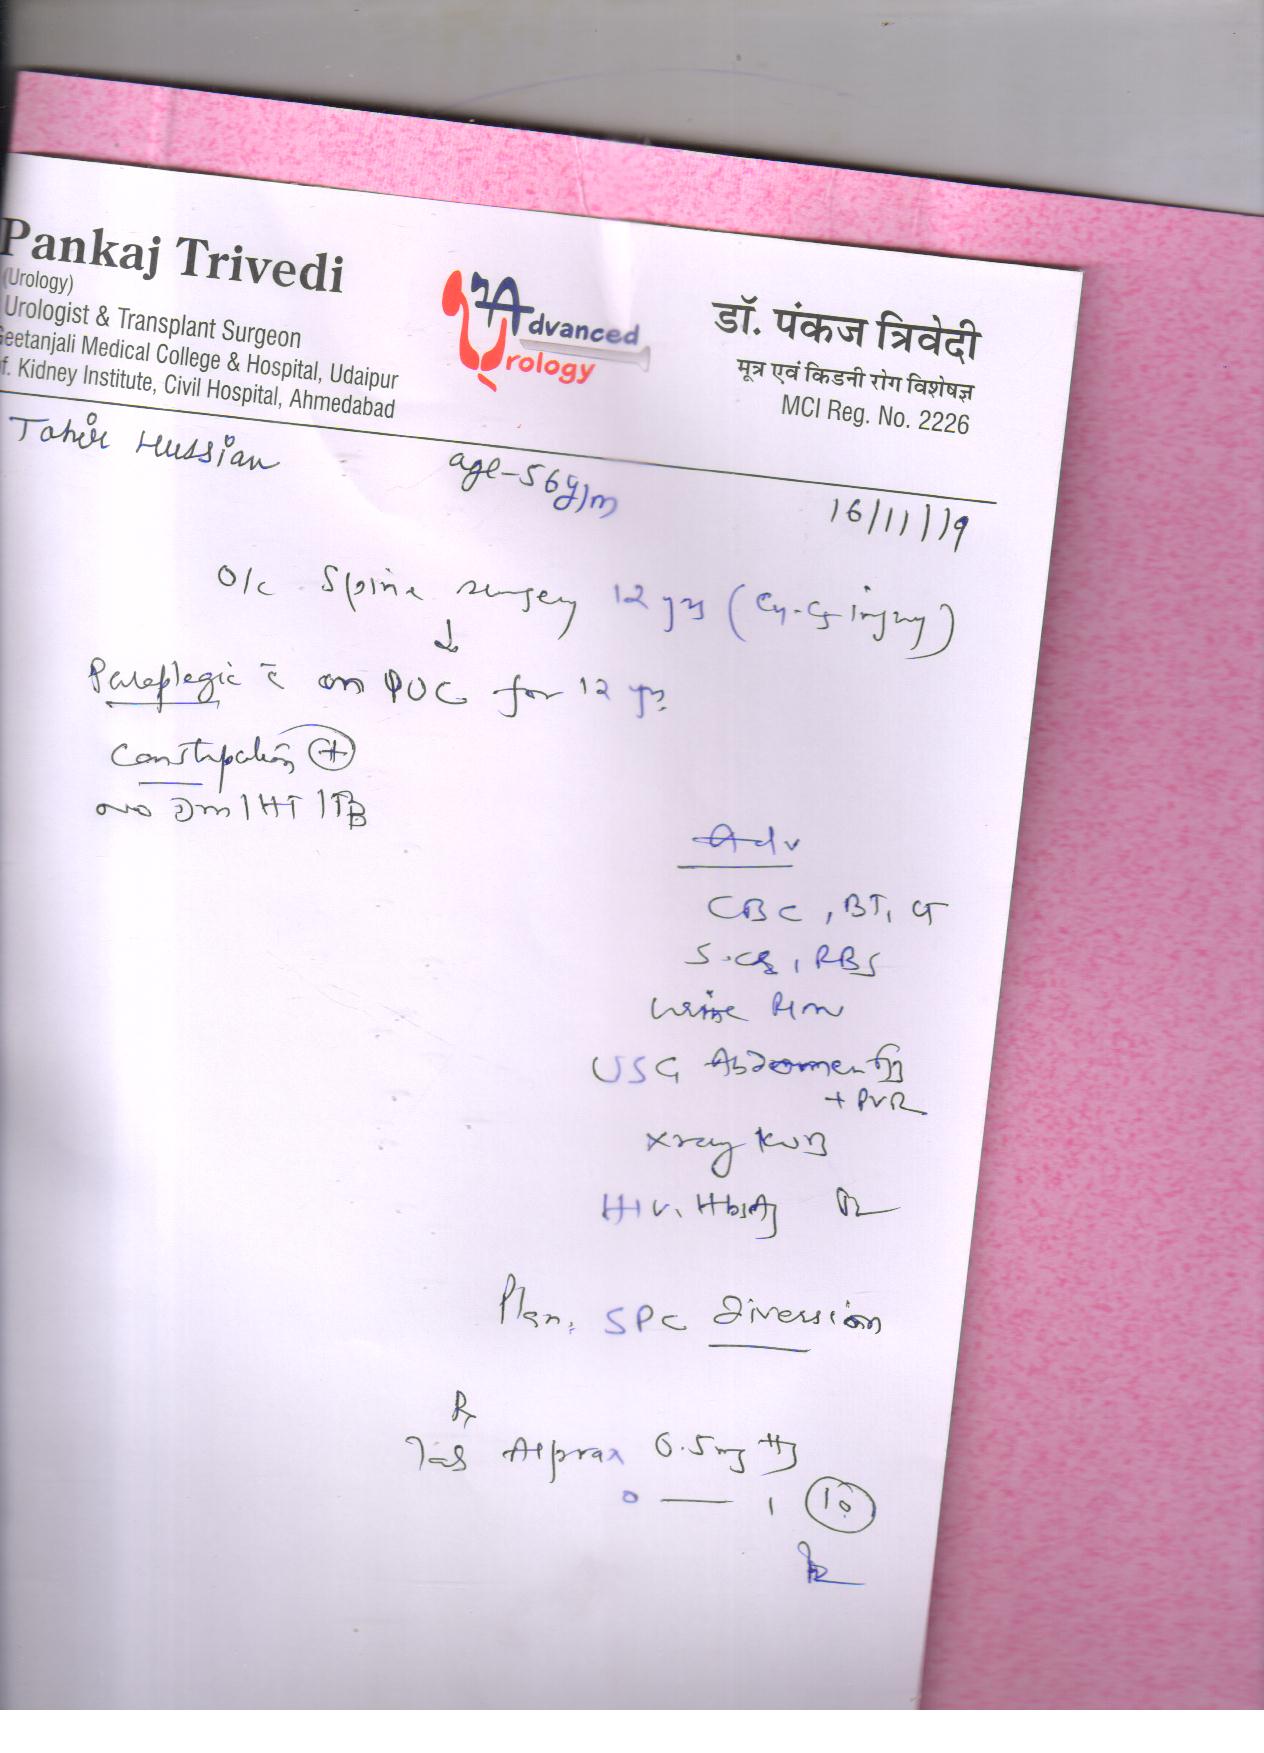 Pankaj Trivedi
(Urology)
Urologist & Transplant Surgeon
Geetanjali Medical College & Hospital, Udaipur
f. Kidney Institute, Civil Hospital, Ahmedabad
Advanced
Urology
डॉ. पंकज त्रिवेदी
मूत्र एवं किडनी रोग विशेषज्ञ
MCI Reg. No. 2226
Tahir Hussian age-56y/m 16/11/19
O/c Spine surgery 12 yrs (C4-C5 injury)
↓
Paraplegic c̄ on PUC for 12 yrs
Constipation +
no Dm / HT / TB
Adv
CBC, BT, CT
S.Cr, RBS
Urine R/m
USG Abdomen
+ PVR
Xray KUB
HIV, HbsAg
Plan: SPC diversion
Rx
Tab Alprax 0.5mg
0 — 1 10